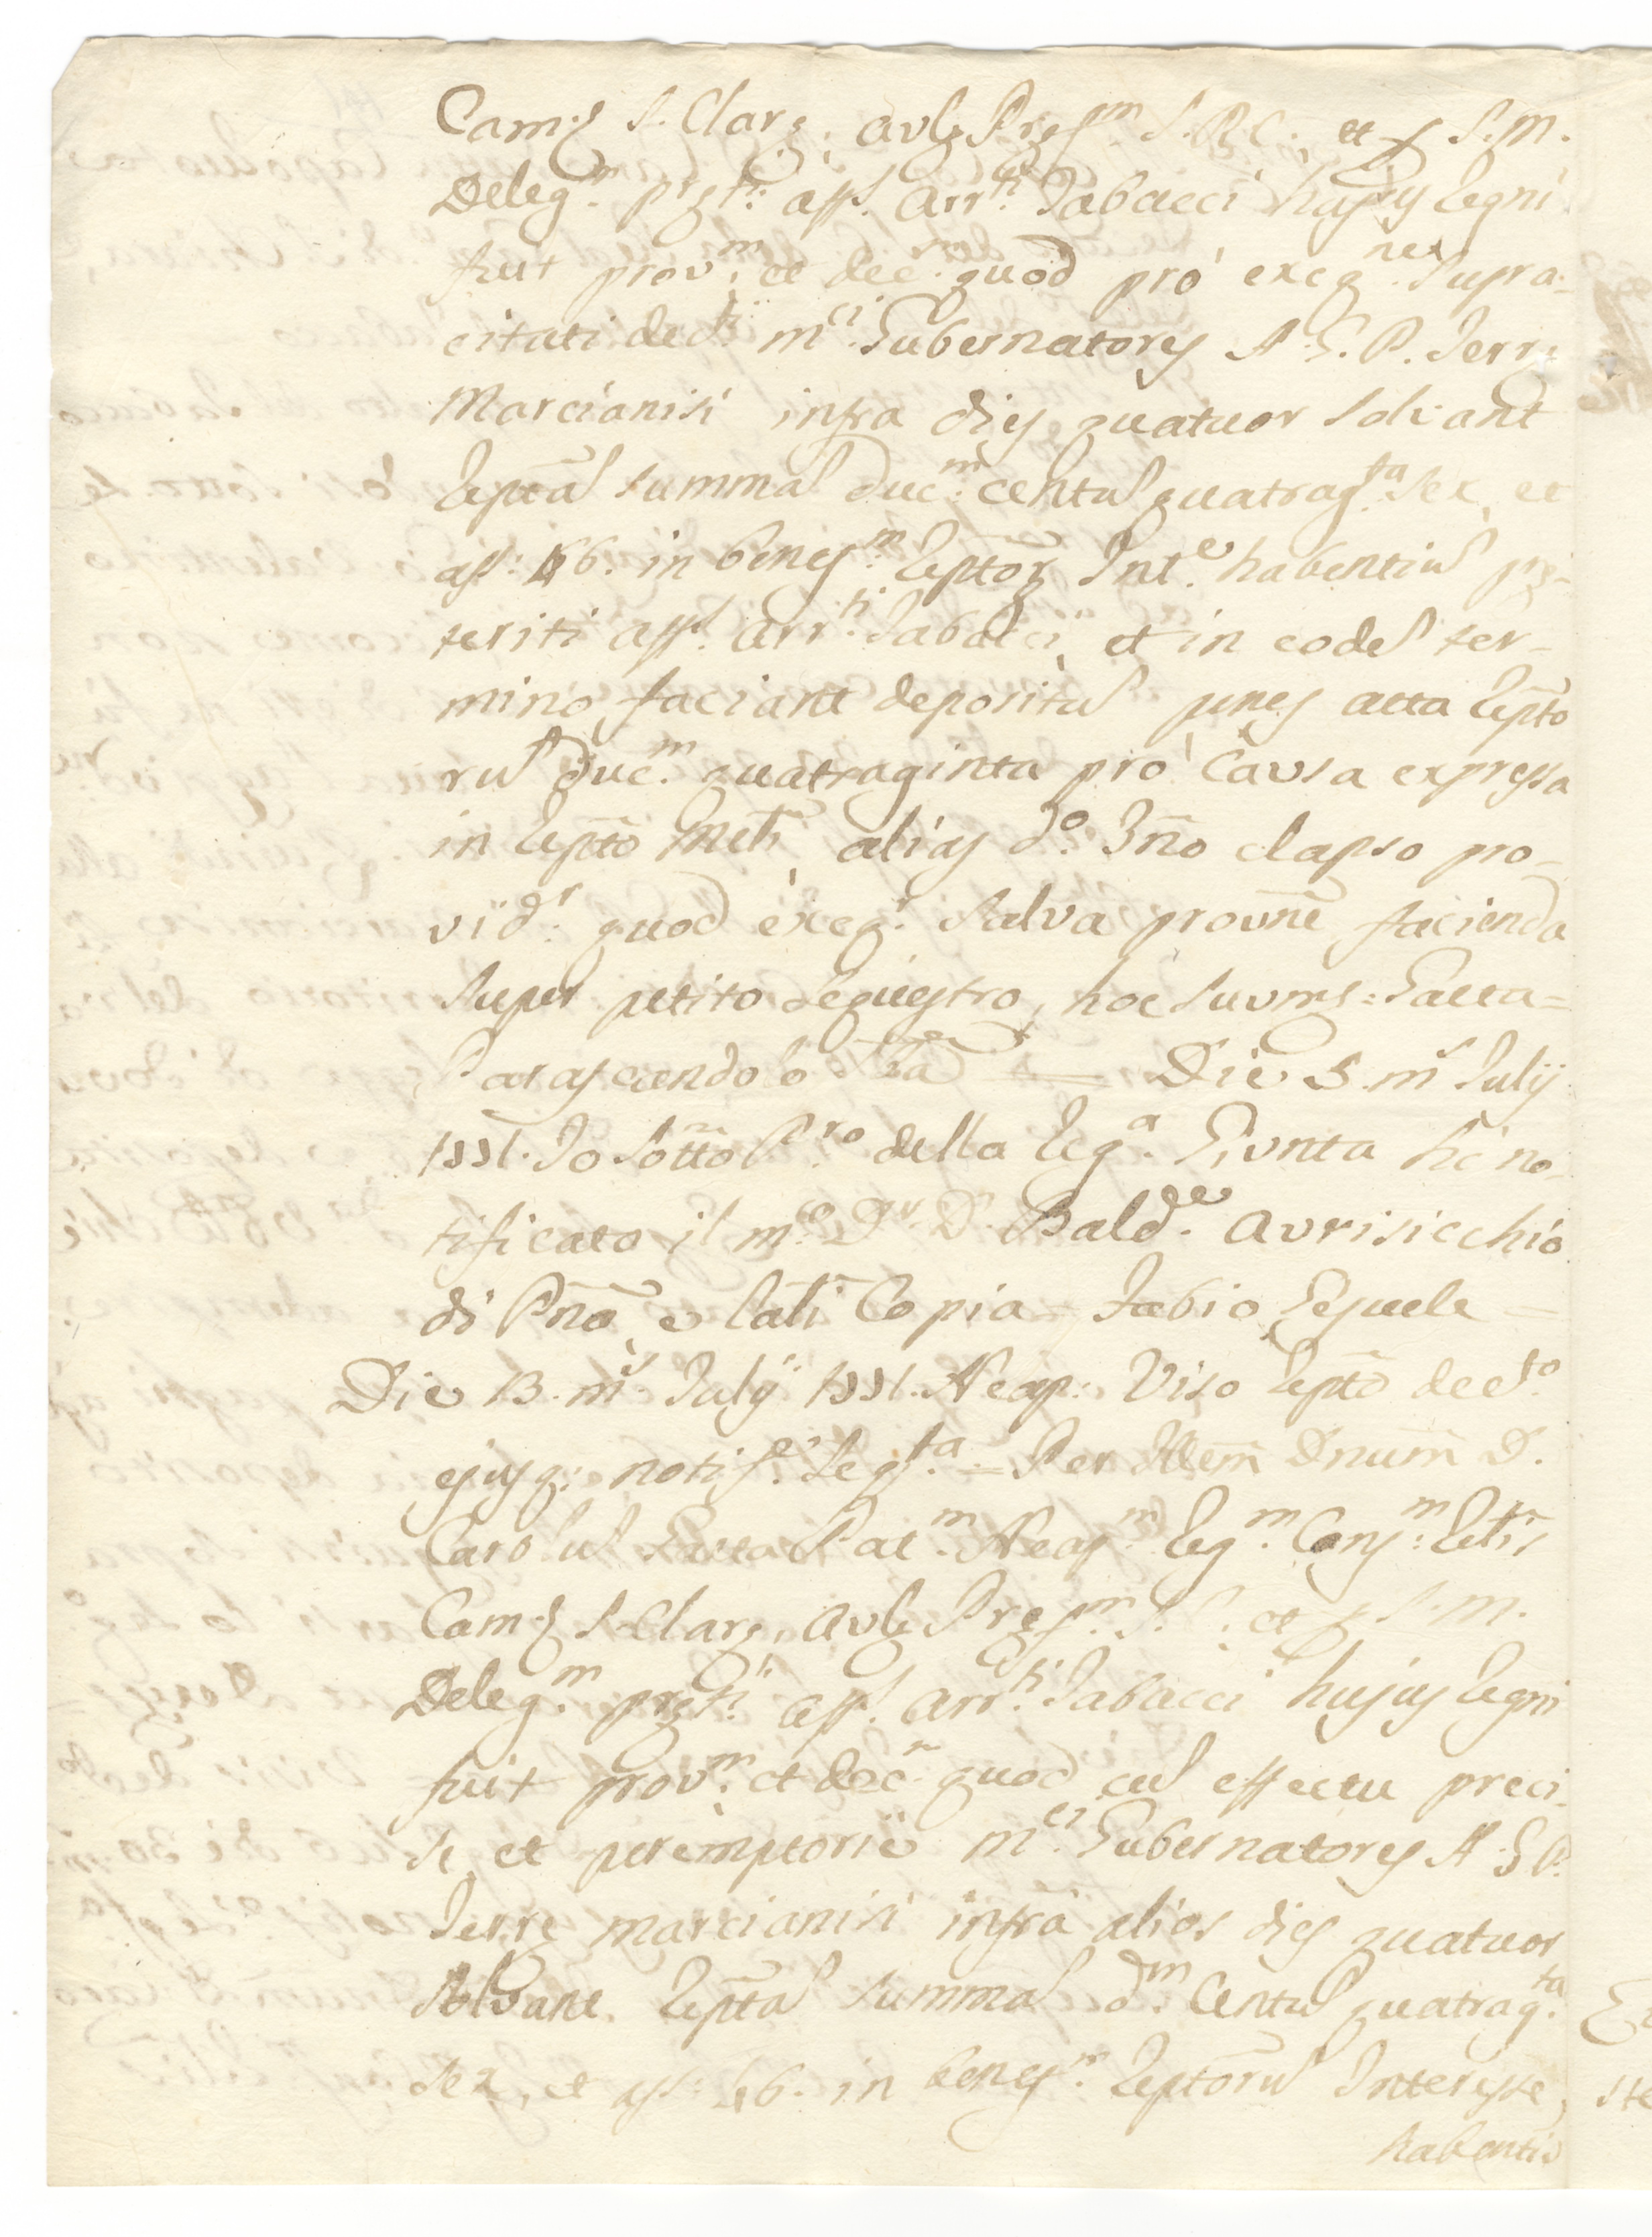 Camę S. Clarę, Aulę Pręf.m S.R.C., et p S.M.
Deleg.m pręt.i aff. Arr.ti Tabacci hujus Regni
fuit prov.m, et dec.m quod pro exeq.nes supra-
citati dec.ti m.ci Gubernatores A.G.P. Terrę
Marcianisi infra dies quatuor solvant
Rептаm summam duc.m centum quatrag.ta sex, et
as: 46. in benef.m Rẽpttorz Int.e habentium prę-
teriti aff. arr.ti Tabacci, et in eodem ter-
mino faciant depositum penes acta Rẽptto
rum duc.m quatraginta pro causa expressa
in Rẽptto Mẽtri, alias d.o Tr̃no elapso pro-
vid.r quod exeq.r salva prov̄ne facienda
super petito sequestro, hoc suum = Gaeta =
Parascandolo
Die 5. m.s Julij
1771. Io sõtto P.ro della Reg.a Giunta hò no-
tificato il m.co D.r D. Bald.e Aurisicchio
di Pñā, e lãti Copia = Fabio Seguele =
Die 13. m.s Julij 1771. Neap: Viso Rẽptto dec.to
ejusq; notif.e seq.ta = Per Illem̃ Dnum̃ D.
Carolum Gaeta Pat.m Neap.m Reg.m Cons.m Rẽtris
Camę S. Clarę, Aulę Pręf.m S.C., et p S.M.
Deleg.m pręt.i aff. Arr.ti Tabacci hujus Regni
fuit prov.m, et dec.m quod cum effectu preci-
se, et peremptorie m.ci Gubernatores A.G.P.
Terrę Marcianisi infra alios dies quatuor
solvant Rẽpttam summam d.m Centum quatrag.ta
sex, et as: 46. in benef.m Rẽpttorum Interesse
habentiu